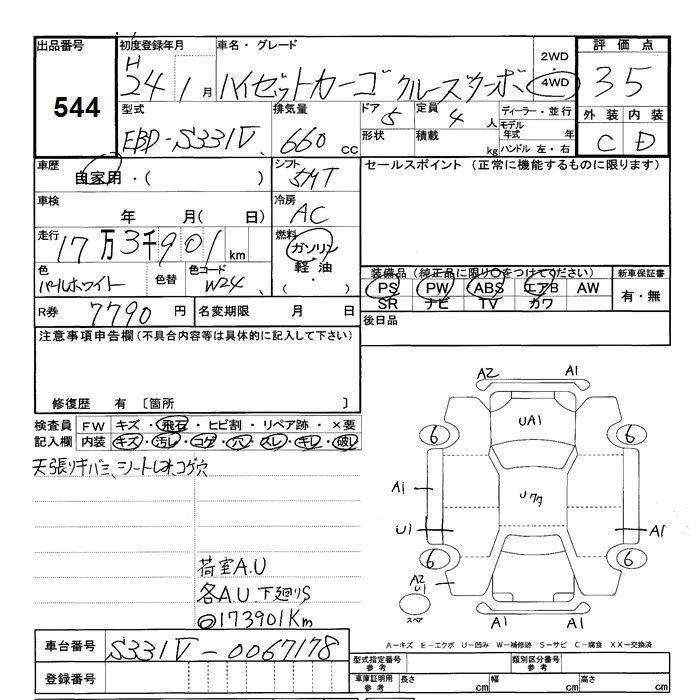 出品番号
544
初度登録年月
H
24 1月
車名・グレード
ハイゼットカーゴ クルーズターボ
2WD
4WD
評価点
3 5
型式
EBD-S331V
排気量
660 cc
ドア
5
定員
4 人
形状
積載
kg
ディーラー・並行
モデル
年式 年
ハンドル 左・右
外装
内装
C
D
車歴
自家用・( )
シフト
5MT
セールスポイント (正常に機能するものに限ります)
車検
年 月( 日)
冷房
AC
走行
17万3千901km
燃料
ガソリン
・
軽油
・
色
パールホワイト
色替
色コード
W24
装備品(純正品に限り○をつけてください)
PS PW ABS エアB AW
SR ナビ TV カワ
新車保証書
有・無
R券
7790 円
名変期限 月 日
後日品
注意事項申告欄(不具合内容等は具体的に記入して下さい)
修復歴 有 〔箇所 〕
検査員
記入欄
FW キズ・飛石・ヒビ割・リペア跡・×要
内装 キズ・汚レ・コゲ・穴・スレ・キレ・破レ
天張リキバミ、シート
コゲ穴
荷室A.U
各A.U 下廻りS
◎173901Km
A2 A1
UA1
6 6
A1
Uクタ
U1 A1
6 6
A2
U1
スペア
A1 A1
A-キズ E-エクボ U-凹み W-補修跡 S-サビ C-腐食 XX-交換済
車台番号
S331V-0067178
登録番号
型式指定番号
参考
類別区分番号
参考
車庫証明用
参考
長さ cm
幅 cm
高さ cm